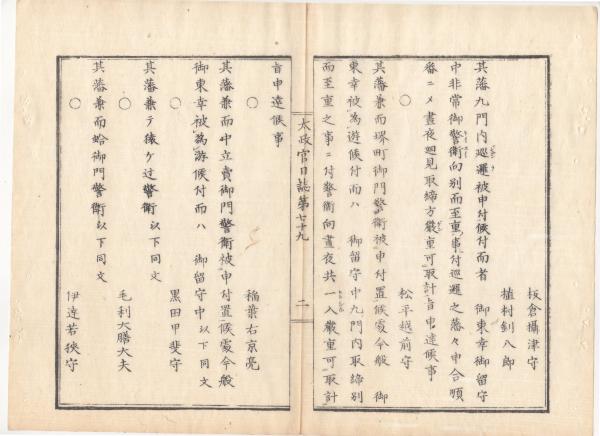 板倉攝津守
植村釗八郎
其藩九門内巡邏被申付候付而者 御東幸御留守
中非常御警衛向別而至重ノ事ニ付巡邏之藩々申合順
番ニメ晝夜廻見取締方嚴重可取計旨申達候事
○ 松平越前守
其藩兼而堺町御門警衛被申付置候處今般 御
東幸被為遊候付而ハ 御留守中九門内取締別
而至重之事ニ付警衛向晝夜共一入嚴重可取計
太政官日誌第七十九 二
旨申達候事
○ 稲葉右京亮
其藩兼而中立賣御門警衛被申付置候處今般
御東幸被為遊候付而ハ 御留守中以下同文
○ 黒田甲斐守
其藩兼テ猿ケ辻警衛以下同文
○ 毛利大膳大夫
其藩兼而蛤御門警衛以下同文
○ 伊達若狹守